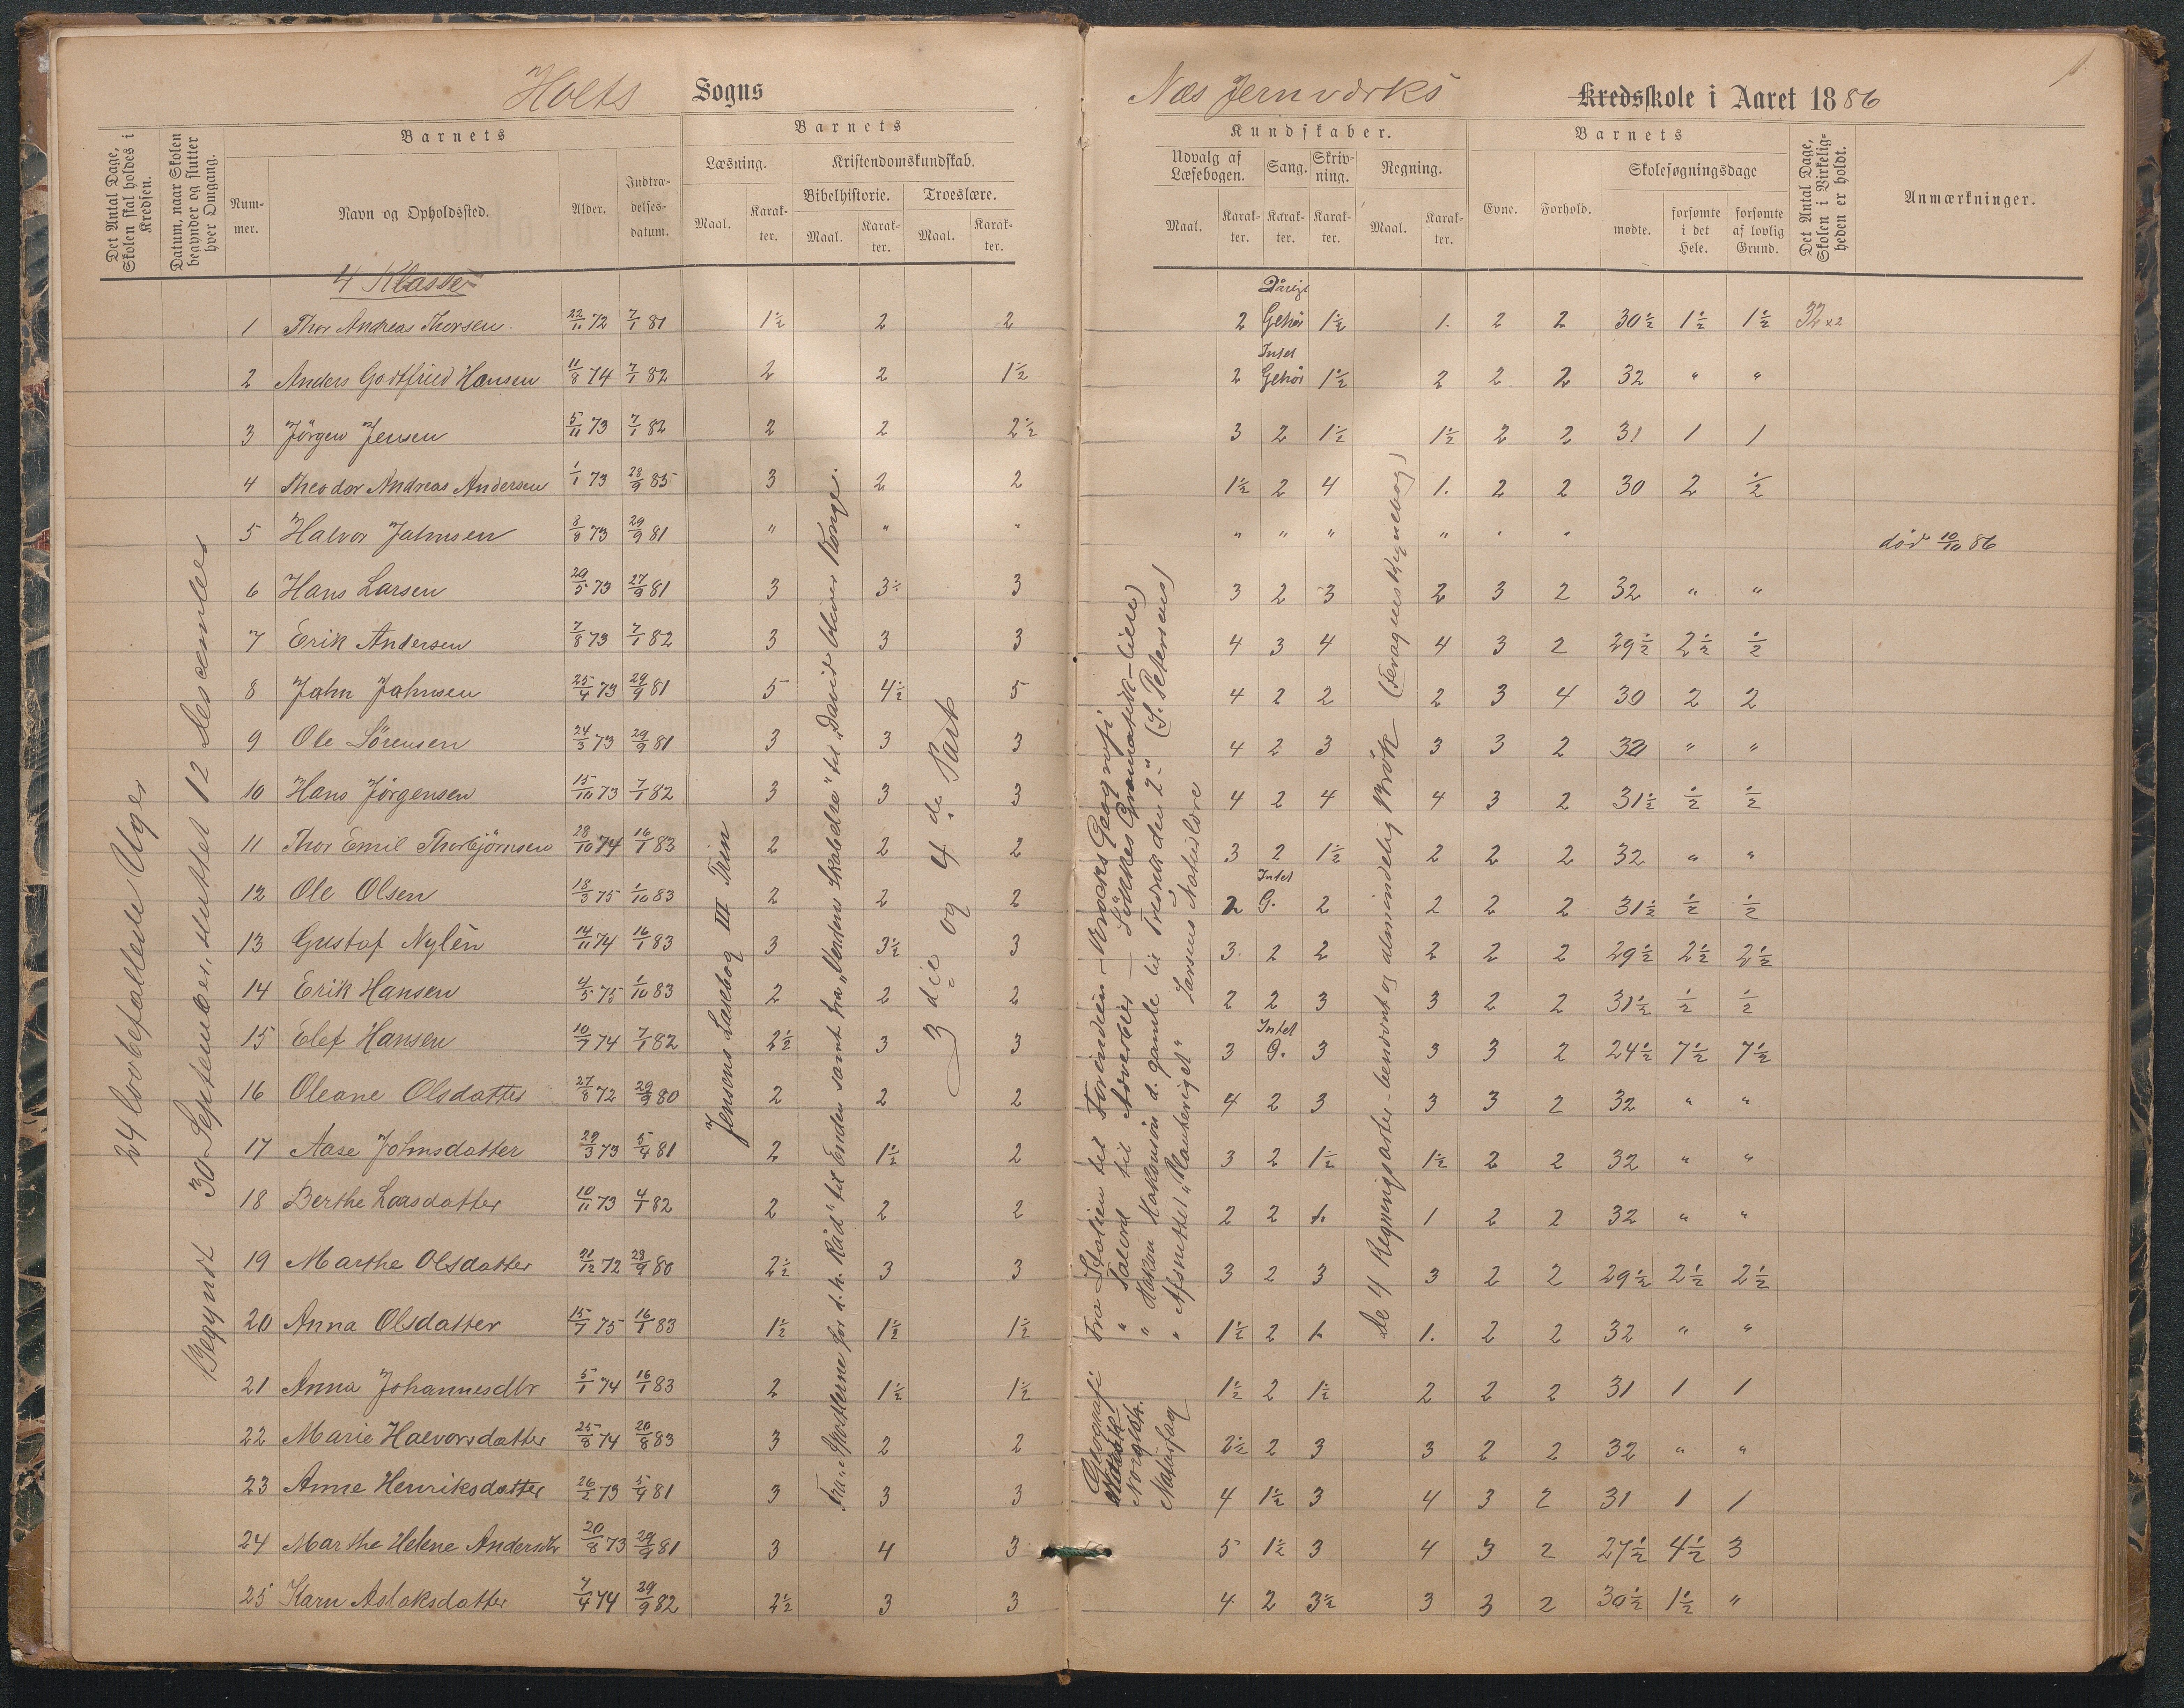 Holts Sogns
Næs Jernværks Kredsskole i Aaret 1886
1.
Det Antal Dage, Skolen skal holdes i Kredsen.
Datum, naar Skolen begynder og slutter hver Omgang.
Barnets
Nummer.
Navn og Opholdssted.
Alder.
Indtrædelsesdatum.
Barnets
Læsning.
Maal.
Karakter.
Kristendomskundskab.
Bibelhistorie.
Maal.
Karakter.
Troeslære.
Maal.
Karakter.
Kundskaber.
Udvalg af Læsebogen.
Maal.
Karakter.
Sang.
Karakter.
Skrivning.
Karakter.
Regning.
Maal.
Karakter.
Barnets
Evne.
Forhold.
Skolesøgningsdage
mødte.
forsømte i det Hele.
forsømte af lovlig Grund.
Det Antal Dage, Skolen i Virkeligheden er holdt.
Anmærkninger.
24 lovbefallede Uger
Begyndt 30 September, sluttet 12 Descember
4 Klasse
1 Thor Andreas Thorsen 22/11 72 7/1 81 1½ 2 2 2 Dårlige Gehør 1½ 1. 2 2 30½ 1½ 1½ 32x2
2 Anders Godtfried Hansen 11/8 74 7/1 82 2 2 1½ 2 Intet Gehør 1½ 2 2 2 32 " "
3 Jörgen Jensen 5/11 73 7/1 82 2 2 2½ 3 2 1½ 1½ 2 2 31 1 1
4 Theodor Andreas Andersen 1/1 73 28/9 85 3 2 2 1½ 2 4 1. 2 2 30 2 ½
5 Halvor Jahnsen 3/8 73 29/9 81 " " " " " " " " " død 10/10 86
6 Hans Larsen 29/5 73 27/9 81 3 3½ 3 3 2 3 2 3 2 32 " "
7 Erik Andersen 7/8 73 7/1 82 3 3 3 4 3 4 4 3 2 29½ 2½ ½
8 Jahn Jahnsen 25/4 73 29/9 81 5 4½ 5 4 2 2 2 3 4 30 2 2
9 Ole Sörensen 24/3 73 29/9 81 3 3 3 4 2 3 3 3 2 32 " "
10 Hans Jörgensen 15/10 73 7/1 82 3 3 3 4 2 4 4 3 2 31½ ½ ½
11 Thor Emil Thorbjörnsen 28/10 74 16/1 83 2 2 2 3 2 1½ 2 2 2 32 " "
12 Ole Olsen 18/3 75 1/10 83 2 2 2 2 Intet G. 2 2 2 2 31½ ½ ½
13 Gustaf Nylén 14/11 74 16/1 83 3 3½ 3 3 2 2 2 2 2 29½ 2½ 2½
14 Erik Hansen 4/5 75 1/10 83 2 2 2 2 2 3 3 2 2 31½ ½ ½
15 Elef Hansen 10/7 74 7/1 82 2½ 3 3 3 Intet G. 3 3 3 2 24½ 7½ 7½
16 Oleane Olsdatter 27/8 72 29/9 80 2 2 2 4 2 3 3 3 2 32 " "
17 Aase Johnsdatter 22/3 73 5/4 81 2 1½ 2 3 2 1½ 1½ 2 2 32 " "
18 Berthe Larsdatter 10/11 73 4/1 82 2 2 2 2 2 1. 1 2 2 32 " "
19 Marthe Olsdatter 21/12 72 28/9 80 2½ 3 3 3 2 3 3 2 2 29½ 2½ 2½
20 Anna Olsdatter 15/7 75 16/1 83 1½ 1½ 1½ 1½ 2 1. 1. 2 2 32 " "
21 Anna Johannesdtr 5/1 74 16/1 83 2 1½ 1½ 1½ 2 1½ 2 2 2 31 1 1
22 Marie Halvorsdatter 25/8 74 20/8 83 3 2 2 2½ 2 3 3 2 2 32 " "
23 Anne Henriksdatter 26/2 73 5/4 81 3 3 3 4 1½ 3 4 3 2 31 1 1
24 Marthe Helene Andersdtr 20/8 73 29/9 81 3 4 3 5 1½ 3 4 3 2 27½ 4½ 3
25 Karn Aslaksdatter 7/4 74 29/9 82 2½ 3 3 4 2 3½ 3 3 2 30½ 1½ "
Jensens Læsebog III Trin
Fra "Apostlerne for d. h. Råd" til Enden samt fra "Verdens Skabelse" til "David bliver Konge".
3 die og 4 de Part
Geografi Fra Italien til Forindien – Krocks Geografi
" Talord til Adverbier – Lökkes Gramatik
Norgesh. " Hakon Hakonsön d. gamle til Fredrik den 2." (S. Petersens)
Naturfag " Afsnittet "Planteriget" Larsens Naturlære
De 4 Regningsarter – benævnt og almindelig Brök (Foragers Regnebog)